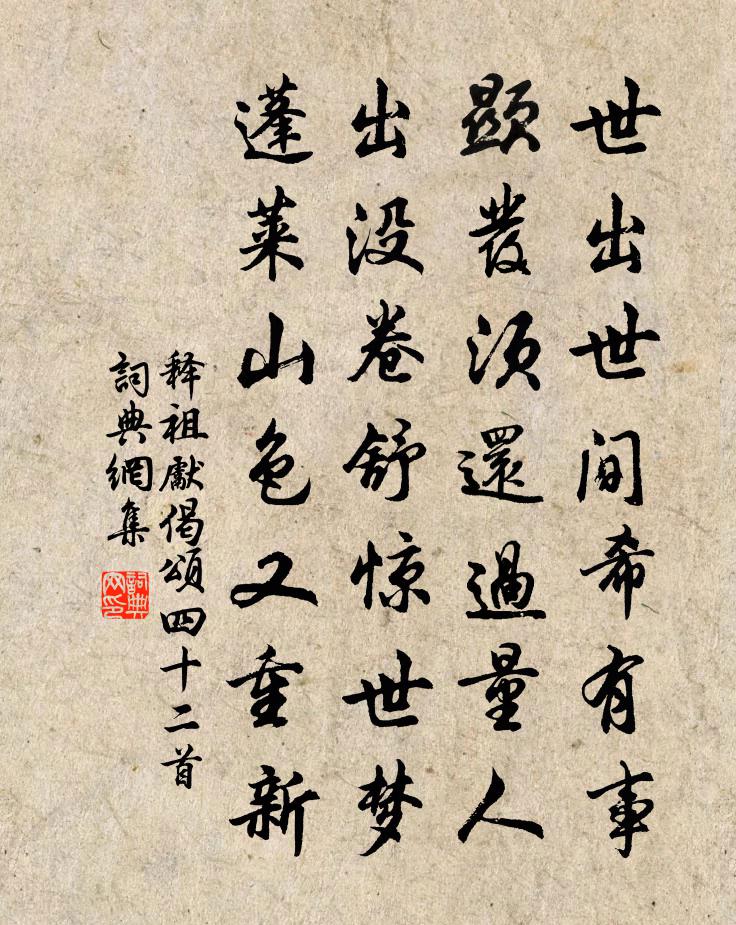 世出世间希有事
顯發须還過量人
出没卷舒惊世梦
蓬莱山色又重新
释祖獻偈頌四十二首
詞典網集
詞典
网印